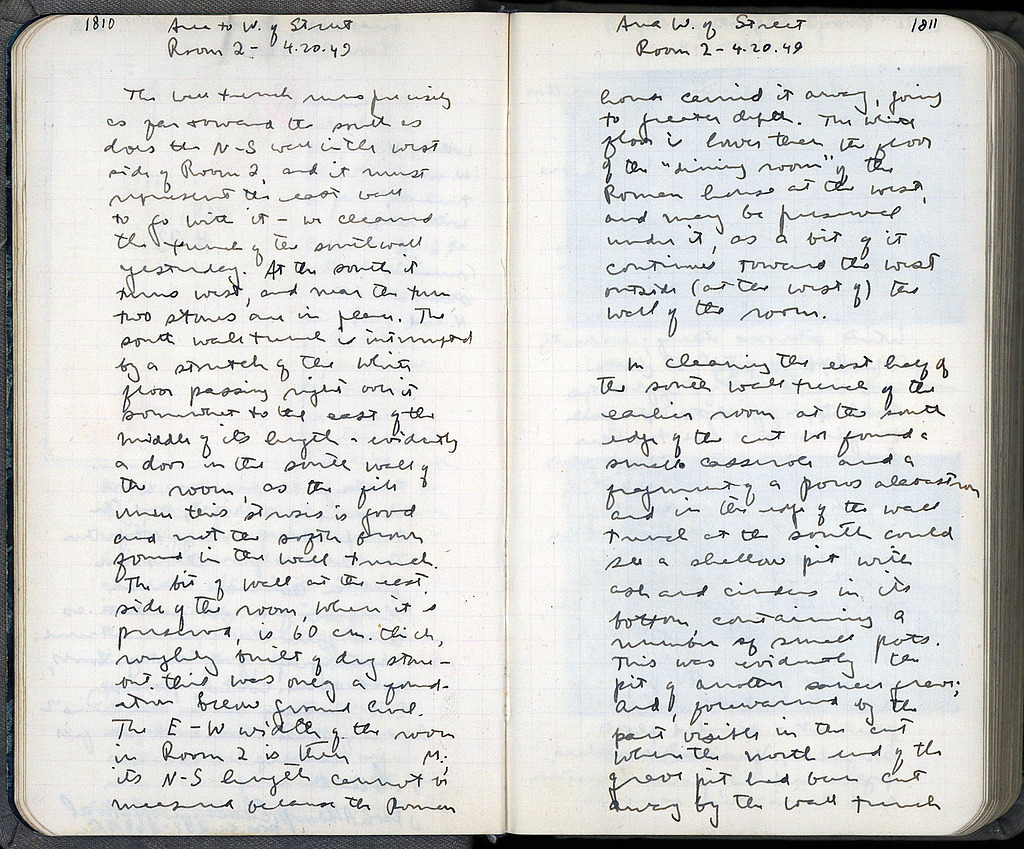 1810
Area to W. of Street
Room 2 - 4.20.49
The wall trench runs precisely
as far toward the south as
does the N-S wall in the west
side of Room 2, and it must
represent the east wall
to go with it - we cleaned
the trench of the south wall
yesterday. At the south it
turns west, and near the turn
two stones are in place. The
south wall trench is interrupted
by a stretch of the white
floor passing right over it
somewhat to the east of the
middle of its length - evidently
a door in the south wall of
the room, as the fill
under this strosis is good
and not the soft brown
found in the wall trench.
The bit of wall at the east
side of the room, where it is
preserved, is 60 cm. thick,
roughly built of dry stone -
but this was only a found-
ation below ground level.
The E-W width of the room
in Room 2 is then M;
its N-S length cannot be
measured because the Roman
1811
Area W. of Street
Room 2 - 4.20.49
house carried it away, going
to greater depth. The white
floor is lower than the floor
of the "dining room" of the
Roman house at the west,
and may be preserved
under it, as a bit of it
continues toward the west
outside (at the west of) the
wall of the room.
In cleaning the east half of
the south wall trench of the
earlier room at the south
edge of the cut we found a
small casserole and a
fragment of a poros alabastron
and in the edge of the wall
trench at the south could
see a shallow pit with
ash and cinders in its
bottom containing a
number of small pots.
This was evidently the
pit of another grave;
and, forewarned by the
part visible in the cut
where the north end of the
grave pit had been cut
away by the wall trench